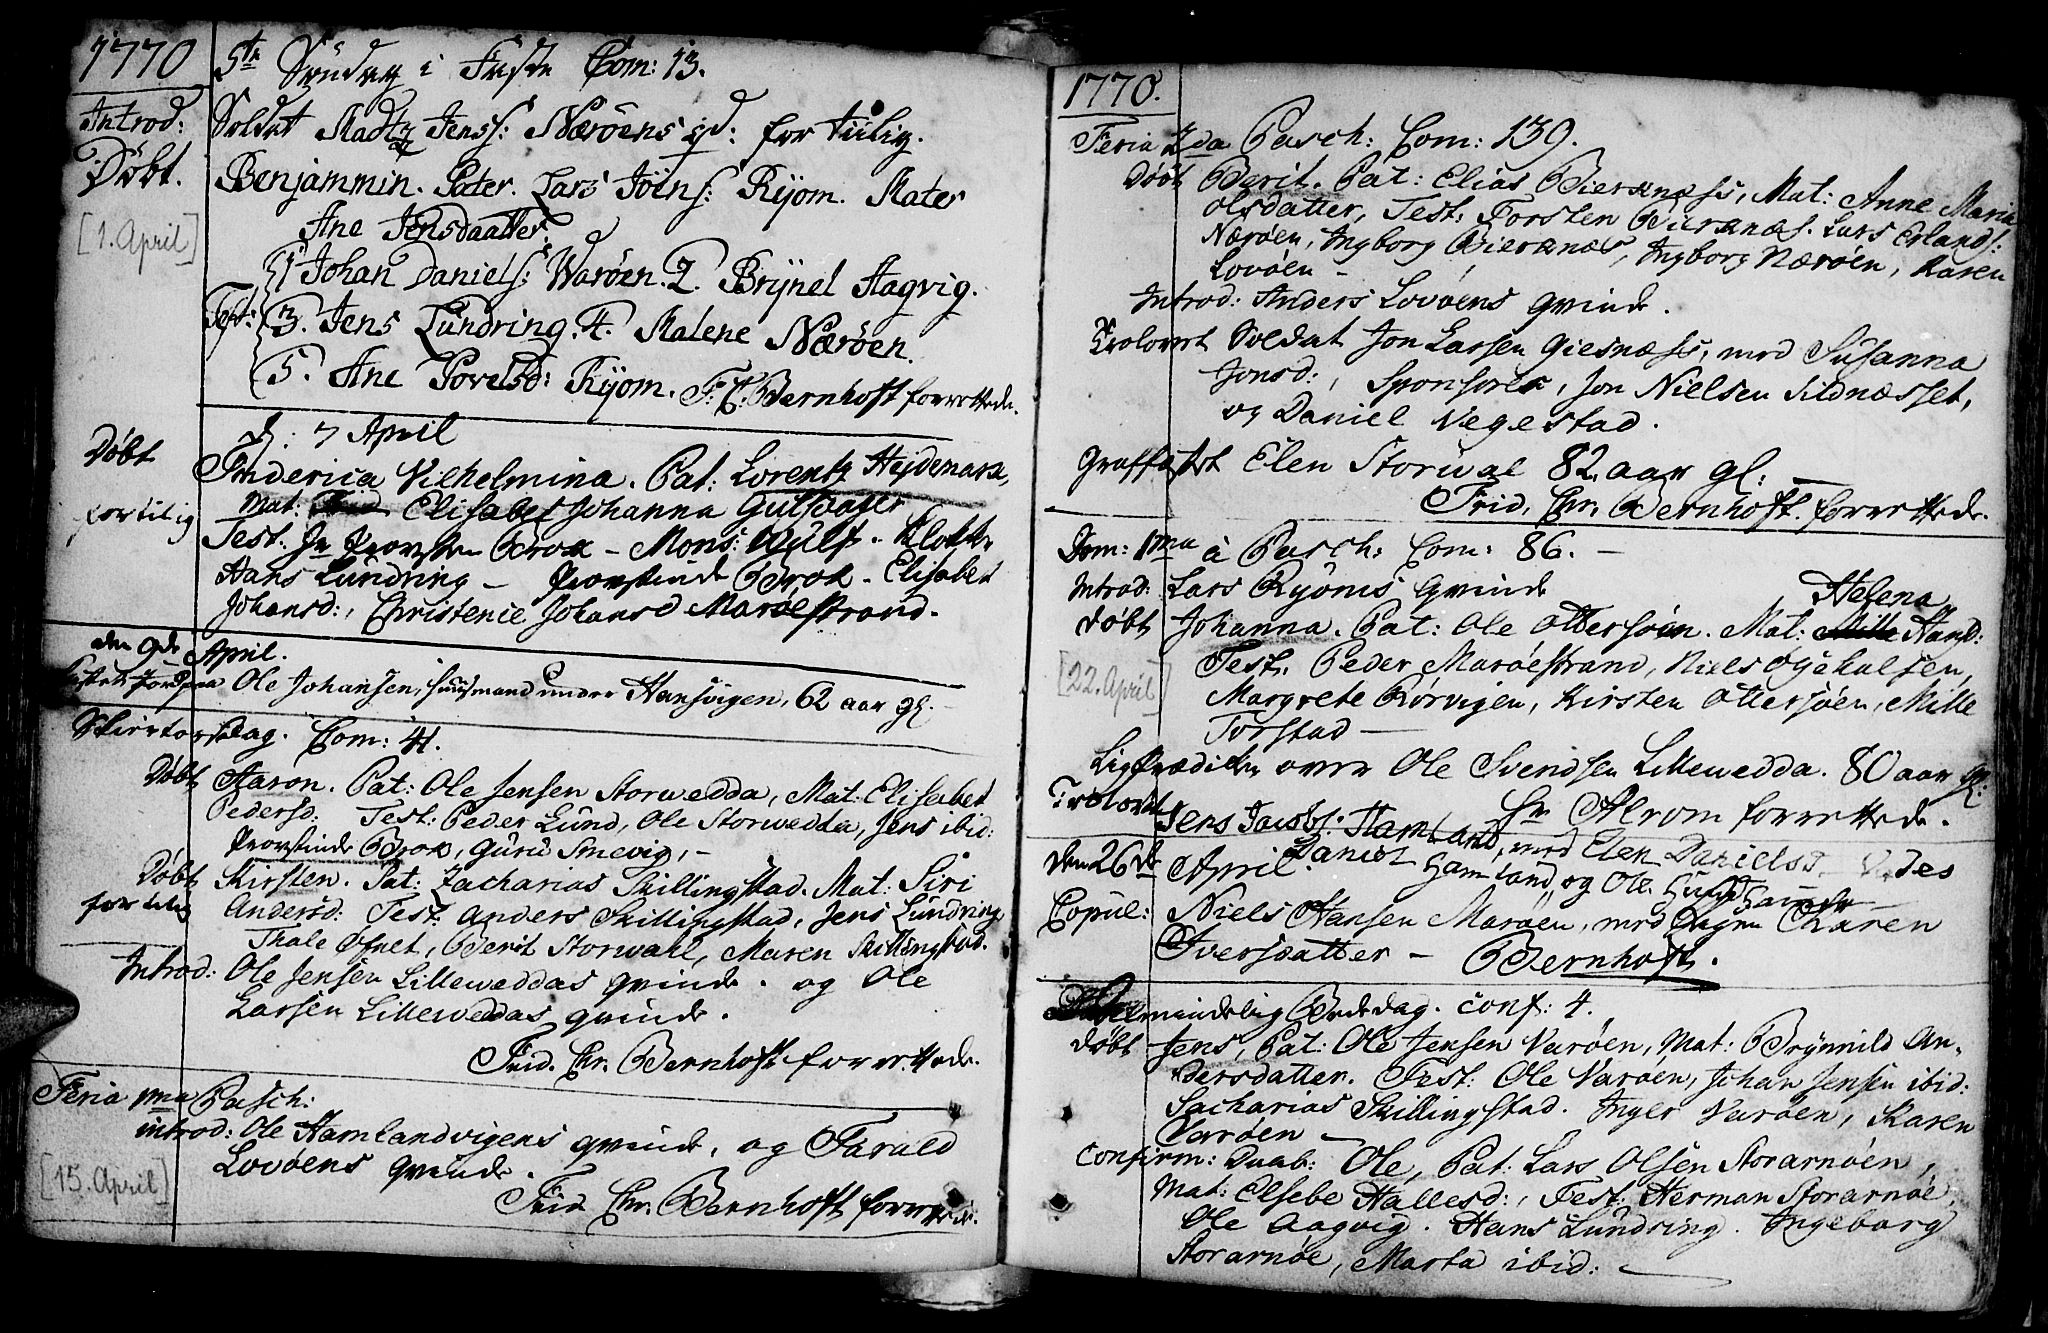 1770
5te Søndag i Faste Com: 13.
Introd: Soldat Madtz Jenss: Nærøens qd: for tiilig.
Døbt. Benjammin. Pater. Lars Jöins: Ryom. Mater
[1. April] Ane Jensdaatter:
Test: 1 Johan Daniels: Warøen. 2. Brynel Aagvig.
3. Jens Lundring. 4. Malene Nærøen.
5. Ane Povelsd: Ryom. F. C. Bernhoft forrettede.
D: 7 April
Døbt Friderica Vilhelmina. Pat: Lorentz Hejdemark,
for tilig Mat: Elisabet Johanna Gulsdager
Test. Hr Provsten Brok – Mons: Wulf. Klokk.
Hans Lundring – Provstinde Brok – Elisabet
Johansd:, Christence Johansd Marøestrand.
den 9de April.
Kastet Jord paa Ole Johansen, huusmand under Hansvigen, 62 aar gl.
Skiertorsdag. Com: 41.
Døbt Aaron. Pat: Ole Jensen Storwedda, Mat: Elisabet
Pedersd: Test: Peder Lund, Ole Storwedda, Jens ibid:
Provstinde Brok, Guru Smevig, –
Døbt Kirsten. Pat: Zacharias Skillingstad. Mat: Siri
for tilig Andersd: Test: Anders Skillingstad, Jens Lundring
Thale Ofnet, Berit Storwahl, Maren Skillingstad.
Introd: Ole Jensen Lilleweddas qvinde. og Ole
Larsen Lilleweddas qvinde.
Frid. Chr. Bernhoft forrettede.
Feria 1ma Pasch:
introd: Ole Hamlandvigens qvinde, og Farald
[15. April] Lovøens qvinde.
Frid Chr. Bernhoft forrettede.
1770.
Feria 2da Pasch: Com: 139.
Døbt Berit. Pat: Elias Bieræness, Mat: Anne Maria
Olsdatter, Test: Torsten Bieræness. Lars Erlands:
Nærøen, Ingborg Bieræness, Ingborg Nærøen, Karen
Lovøen –
Introd: Anders Lovøens qvinde.
Trolovet Soldat Jon Larsen Giesnæss, med Susanna
Jonsd:, Sponsores, Jon Nielsen Sildnæsset,
og Daniel Vegestad.
Graffæstet Elen Storval 82 aar gl: –
Frid, Chr. Bernhoft. forrettede.
Dom: 1ma à Pasch: Com: 86. –
Introd: Lars Ryoms qvinde
Helena
Døbt Johanna. Pat: Ole Ottersøin. Mat: Mille Hand:
[22. April] Test. Peder Marøestrand, Niels
Margrete Rörvigen, Kirsten Ottersøen, Mille
Torstad –
Ligprædiken over Ole Svendsen Lillewedda. 80 aar gl:
Hr Alrom forrettede.
Trolovet Jens Jacobs: Hamland, med Elen Danielsd.
Daniel Hamland, og Ole
den 26de April.
Copul: Niels Hansen Marøen, med Pigen Karen
Iversdatter – Bernhoft.
Almindelig Bededag. Conf: 4.
Døbt Jens, Pat: Ole Jensen Varøen, Mat: Brynnild An-
dersdatter. Test: Ole Varøen, Johan Jensen ibid:
Sacharias Skillingstad. Inger Varøen, Karen
Varøen –
Confirm: Daab: Ole, Pat: Lars Olsen Storarnøen,
Mat: Elsebe Hallesd:, Test: Herman Storarnøe,
Ole Aagvig. Hans Lundring. Ingeborg
Storarnøe, Marta ibid: –